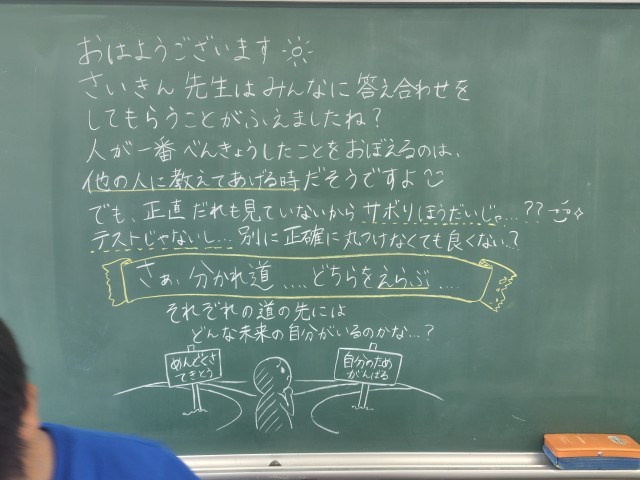 おはようございます
さいきん 先生は みんなに 答え合わせを
してもらうことがふえましたね?
人が一番 べんきょうしたことをおぼえるのは、
他の人に教えてあげる時だそうですよ
でも、正直だれも見ていないから サボりほうだいじゃ...??
テストじゃないし... 別に正確に丸つけなくても良くない?
さぁ、分かれ道....どちらをえらぶ....
それぞれの道の先には
どんな未来の自分がいるのかな...?
めんどくさ
てきとう
自分のため
がんばる